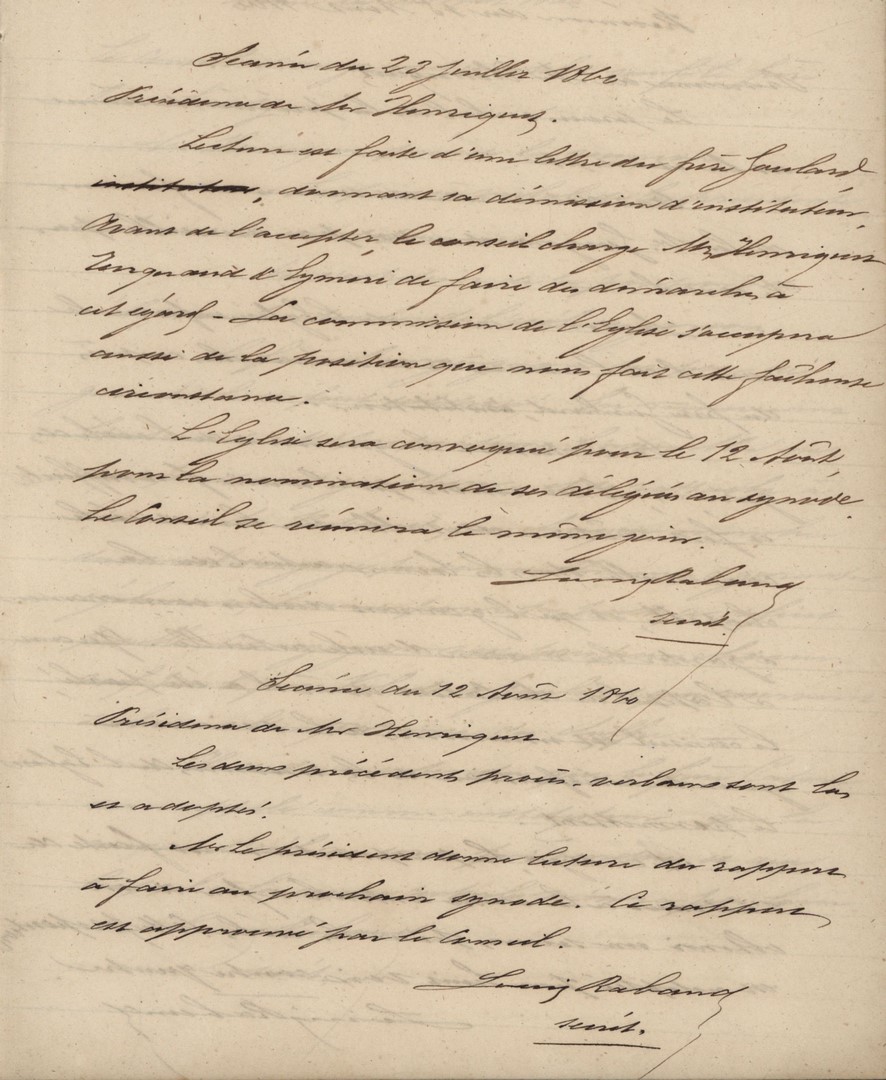 Séance du 23 juillet 1860
Présidence de Mr Henriquet.
Lecture est faite d'une lettre du frère Goulard
institateur, donnant sa démission d'instituteur.
Avant de l'accepter, le conseil charge Mrs Henriquet
& Eymeri de faire des démarches à
cet égard – La commission de l'Eglise s'occupera
aussi de la position que nous fait cette fâcheuse
circonstance.
L'Eglise sera convoquée pour le 12 Août,
pour la nomination de ses délégués au synode.
Le Conseil se réunira le même jour.
Louis Rabaud
secrét.
Séance du 12 Août 1860
Présidence de Mr Henriquet
Les deux précédents procès-verbaux sont lus
et adoptés.
Mr le président donne lecture du rapport
à faire au prochain synode. Ce rapport
est approuvé par le Conseil.
Louis Rabaud
secrét.